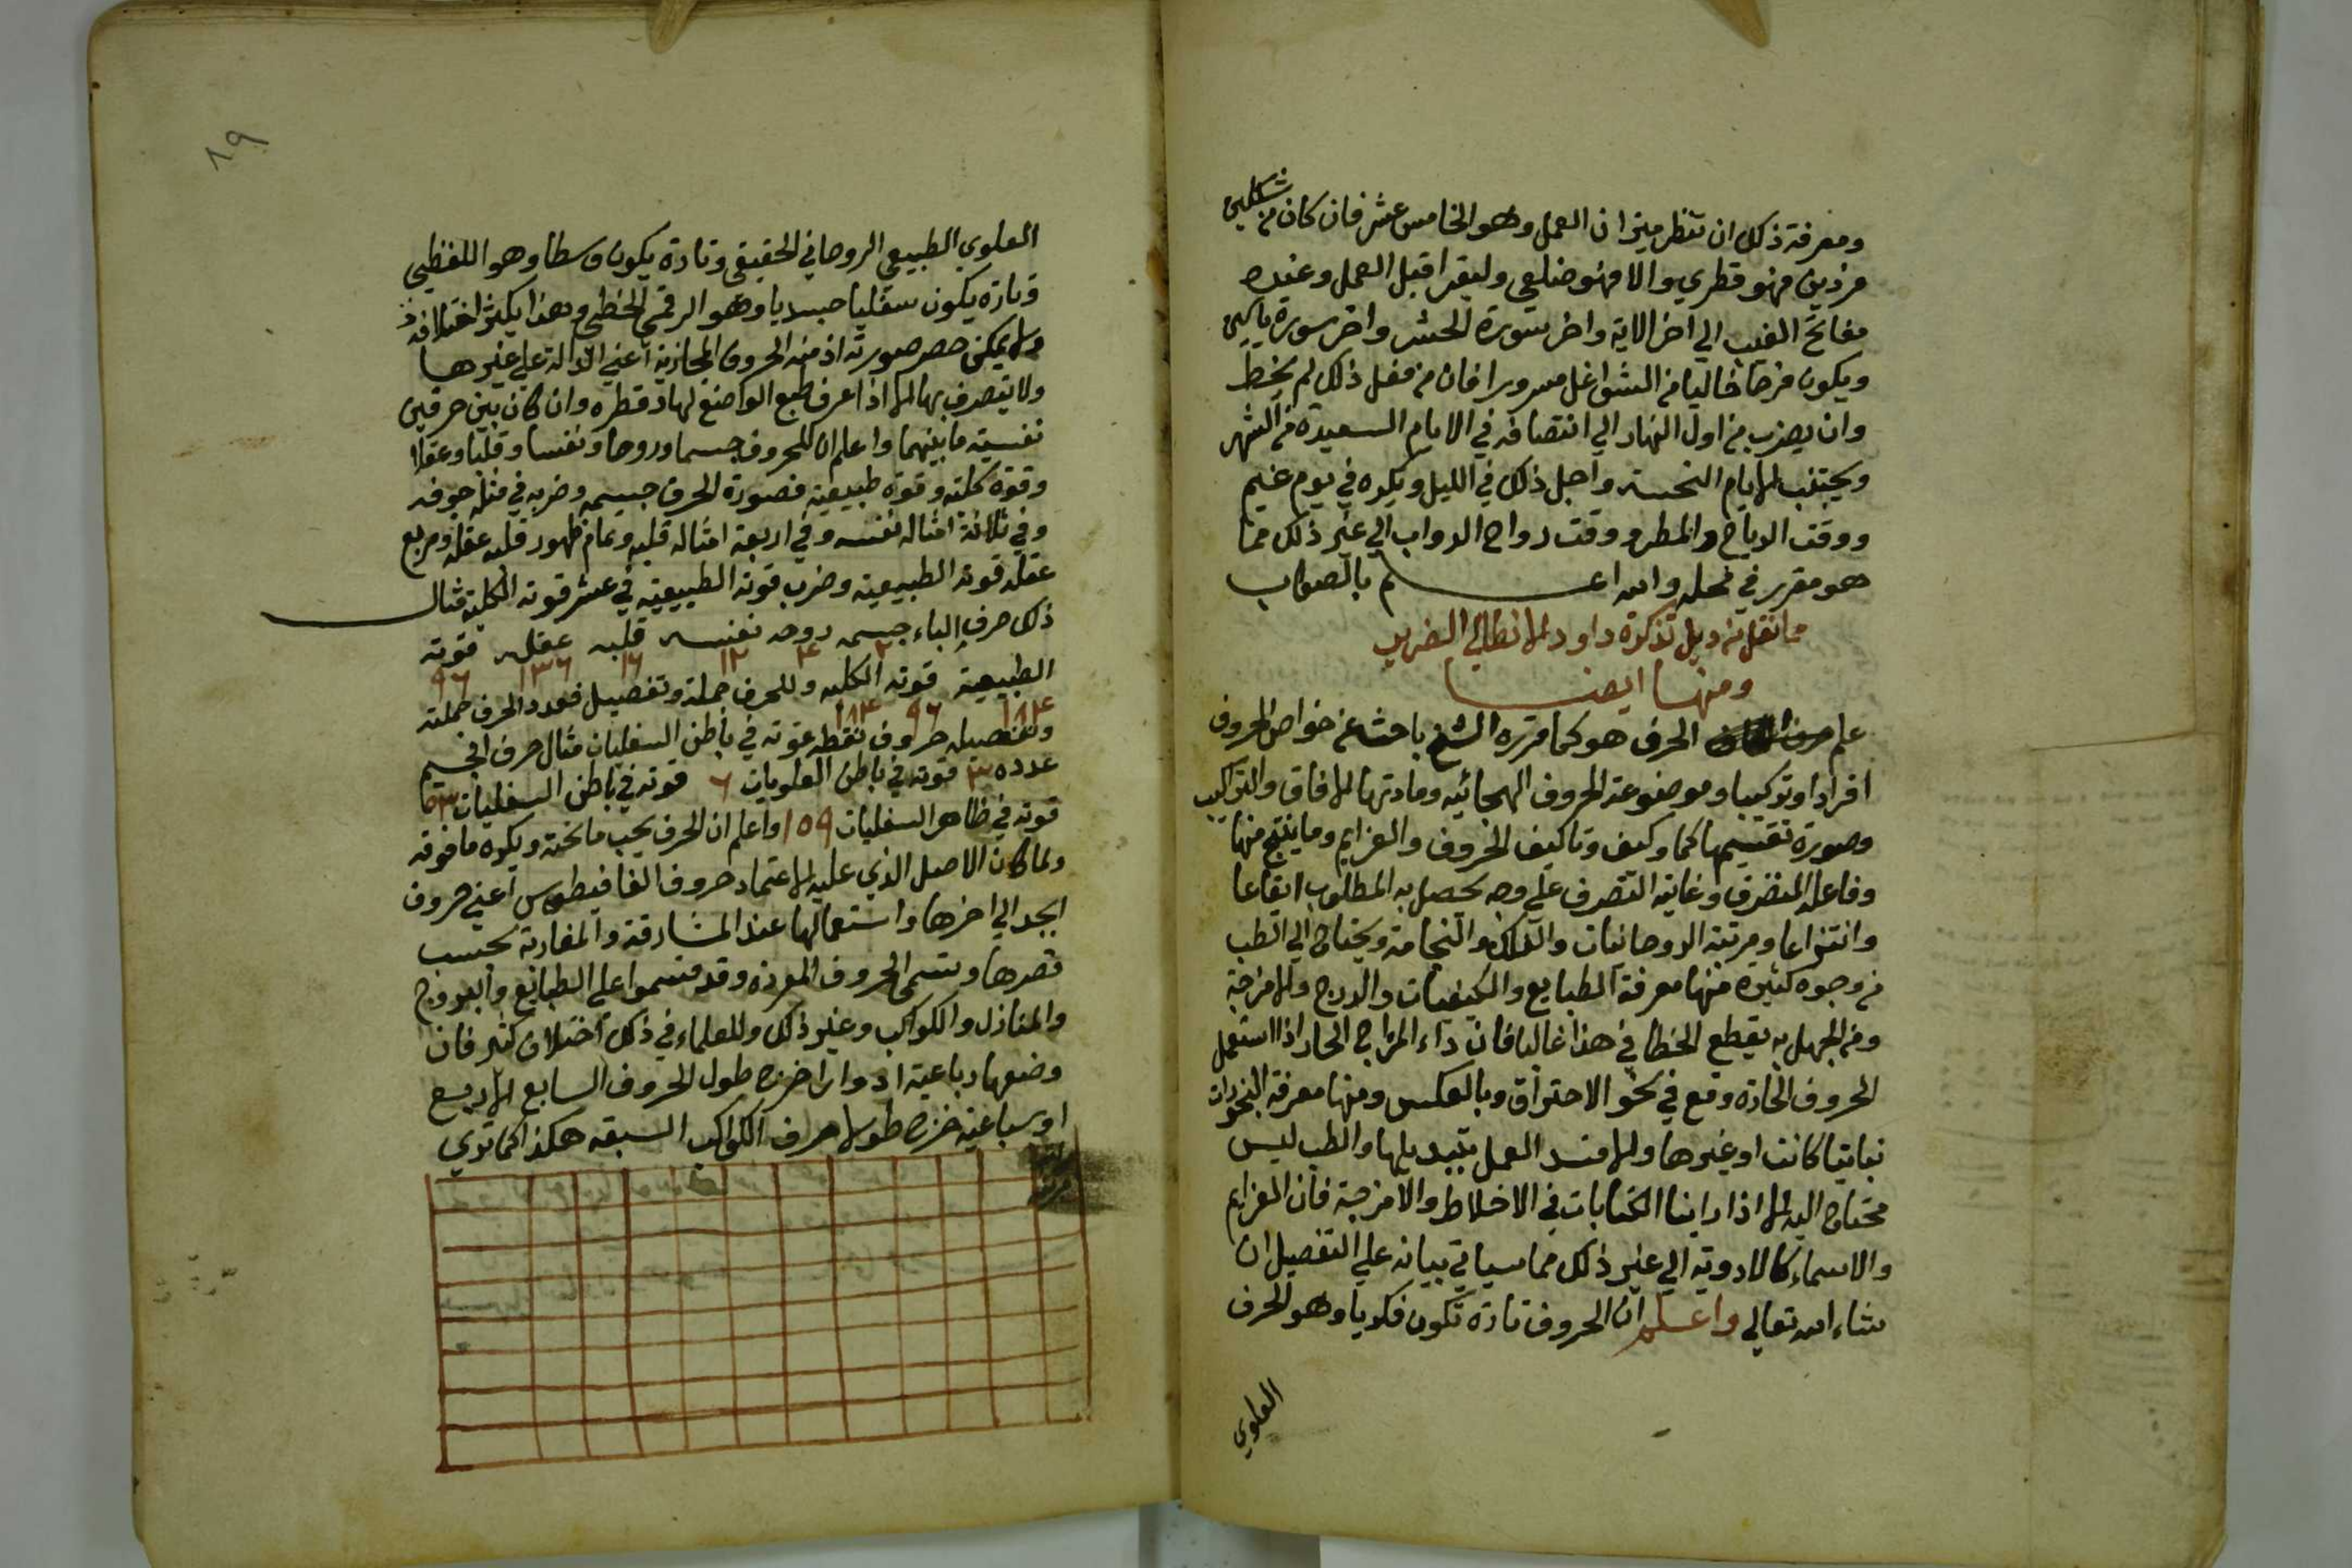 ومعرفة ذلك ان تنظر ميزان العمل وهو الخامس عشر فان كان من شكلين
فردين فهو قطري والا فهو ضلعي وليقرا قبل العمل وعنده
مفاتح الغيب الي آخر الاية واخر سورة الحشر واخر سورة ياسين
ويكون فرحا خاليا من الشواغل مسرورا فان من فعل ذلك لم يخط
وان يضرب من اول النهار الي انتصافه في الايام السعيدة من الشهر
ويجتنب الايام النحسة واجل ذلك في الليل ويكره في يوم غيم
ووقت الرياح والمطر ووقت رواح الدواب الي غير ذلك مما
هو مقرر في محله والله اعلم بالصواب
مما نقل من ذيل تذكرة داود الانطاكي الضرير
ومنها ايضا
علم الحرف هو كما قرره الشيخ باحث عن خواص الحروف
افرادا وتركيبا وموضوعة الحروف الهجائيه ومادتها الاوفاق والتراكيب
وصورة تقسيمها كما وكيف وتاليف الحروف والعزايم وما ينتج منها
وفاعله المتصرف وغايته التصرف علي وجه يحصل به المطلوب ايقاعا
وانتزاعا ومرتبته الروحانيات والفلك والنجامة ويحتاج الي الطب
من وجوه كثيره منها معرفة الطبايع والكيفيات والدرج والامزجة
ومن الجهل به يقطع الخطا في هذا غالبا فان داء المزاج الحار اذا استعمل
الحروف الحارة وقع في نحو الاحتراق وبالعكس ومنها معرفة البخورات
نباتيا كانت او غيرها والا فسد العمل بتبديلها والطب ليس
محتاج اليه الا اذا راينا الكتابات في الاخلاط والامزجة فان العزايم
والاسماء كالادوية الي غير ذلك مما سياتي بيانه علي التفصيل ان
شاء الله تعالي واعلم ان الحروف تارة تكون فكريا وهو الحرف
العلوي
٨٩
العلوي الطبيعي الروحاني الحقيقي وتارة يكون وسطا وهو اللفظي
وتارة يكون سفليا جسديا وهو الرقمي الخطي وهذا يكثر اختلافه
ولا يمكن حصر صورته اذ منه الحروف المجازية اعني الدالة علي غيرها
ولا يتصرف بها الا اذا عرف طبع الواضع لها وقطره وان كان بين حرفين
نفسية ما بينهما واعلم ان للحروف جسما وروحا ونفسا وقلبا وعقلا
وقوة كلية وقوة طبيعية فصورة الحرف جسمه وضربه في مثله
وفي ثلاثة امثاله نفسه وفي اربعة امثاله قلبه وتمام ظهور قلبه عقله ومربع
عقله قوته الطبيعية وضرب قوته الطبيعية في عشر قوته الكلية مثال
ذلك حرف الباء جسمه ٢ روحه ٤ نفسه ١٢ قلبه ١٦ عقله ١٣٦ قوته ٩٦
الطبيعية قوته الكليه وللحرف جملة وتفصيل فعدد الحرف جملته
وتفصيله حروف نقطه قوته في باطن السفليان مثال حرف الجيم
عدده ٣ قوته في باطن العلويات ٦ قوته في باطن السفليات
قوته في ظاهر السفليات ١٥٩ واعلم ان الحرف يحب ما تحته ويكره ما فوقه
ولما كان الاصل الذي عليه الاعتماد حروف الفا فيطوس اعني حروف
ابجد الي اخرها واستعمالها عند المشارقة والمغاربة بحسب
قصرها وتسمي الحروف المفرده وقد قسموا علي الطبائع والبروج
والمنازل والكواكب وغير ذلك وللعلماء في ذلك اختلاف كثير فان
وضعها رباعية ادوارا طول الحروف السابع الاربع
او سباعية طول احرف الكواكب السبعه هكذا كما تري